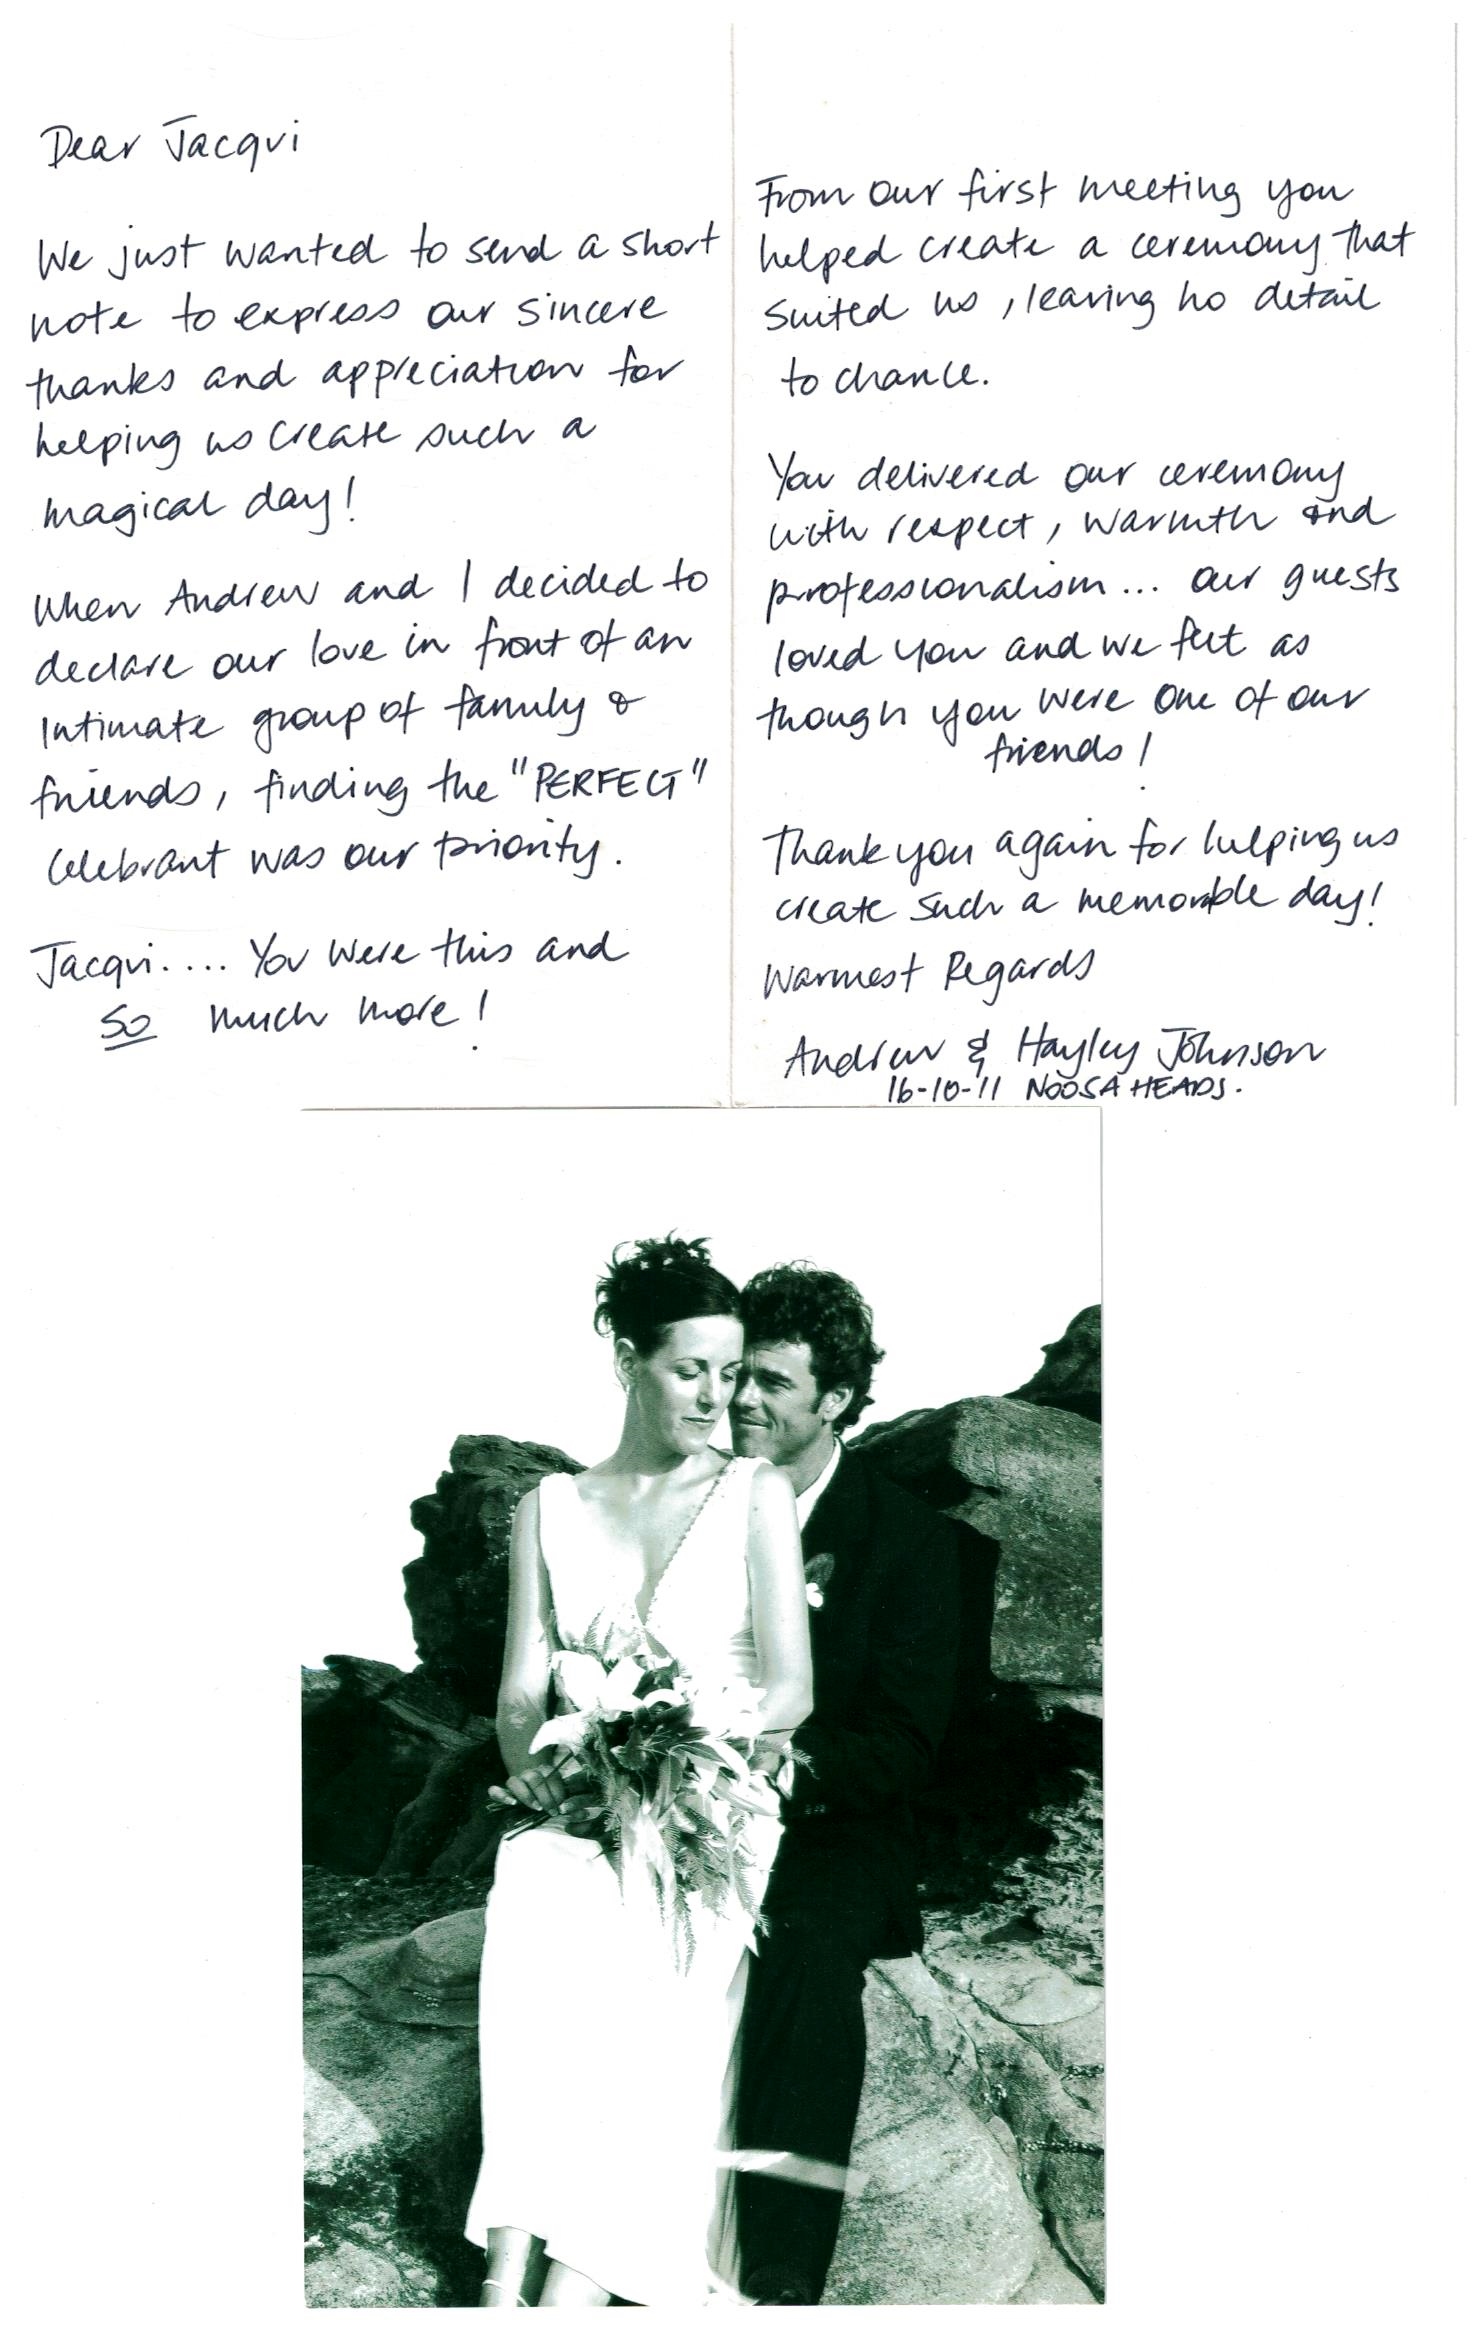 Dear Jacqui
We just wanted to send a short
note to express our sincere
thanks and appreciation for
helping us create such a
magical day!
When Andrew and I decided to
declare our love in front of an
Intimate group of family &
friends, finding the "PERFECT"
Celebrant was our priority.
Jacqui.... You were this and
So much more!
From our first meeting you
helped create a ceremony that
suited us, leaving no detail
to chance.
You delivered our ceremony
with respect, warmth and
professionalism... our guests
loved you and we felt as
though you were one of our
friends!
Thank you again for helping us
create such a memorable day!
Warmest Regards
Andrew & Hayley Johnson
16-10-11 NOOSA HEADS.